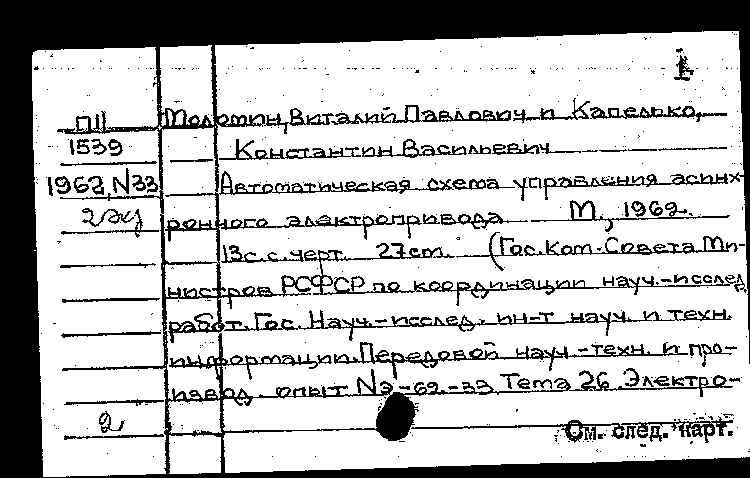 1
П11 Молотин, Виталий Павлович и Капелько,
1539 Константин Васильевич
1962, N33 Автоматическая схема управления асинх-
2 экз ронного электропривода. М., 1962.
13 с. с черт. 27 cm. (Гос. Ком. Совета Ми-
нистров РСФСР по координации науч.-исслед.
работ. Гос. Науч.-исслед. ин-т науч. и техн.
информации. Передовой науч.-техн. и про-
извод. опыт Nэ-62-33 Тема 26. Электро-
2
См. след. карт.